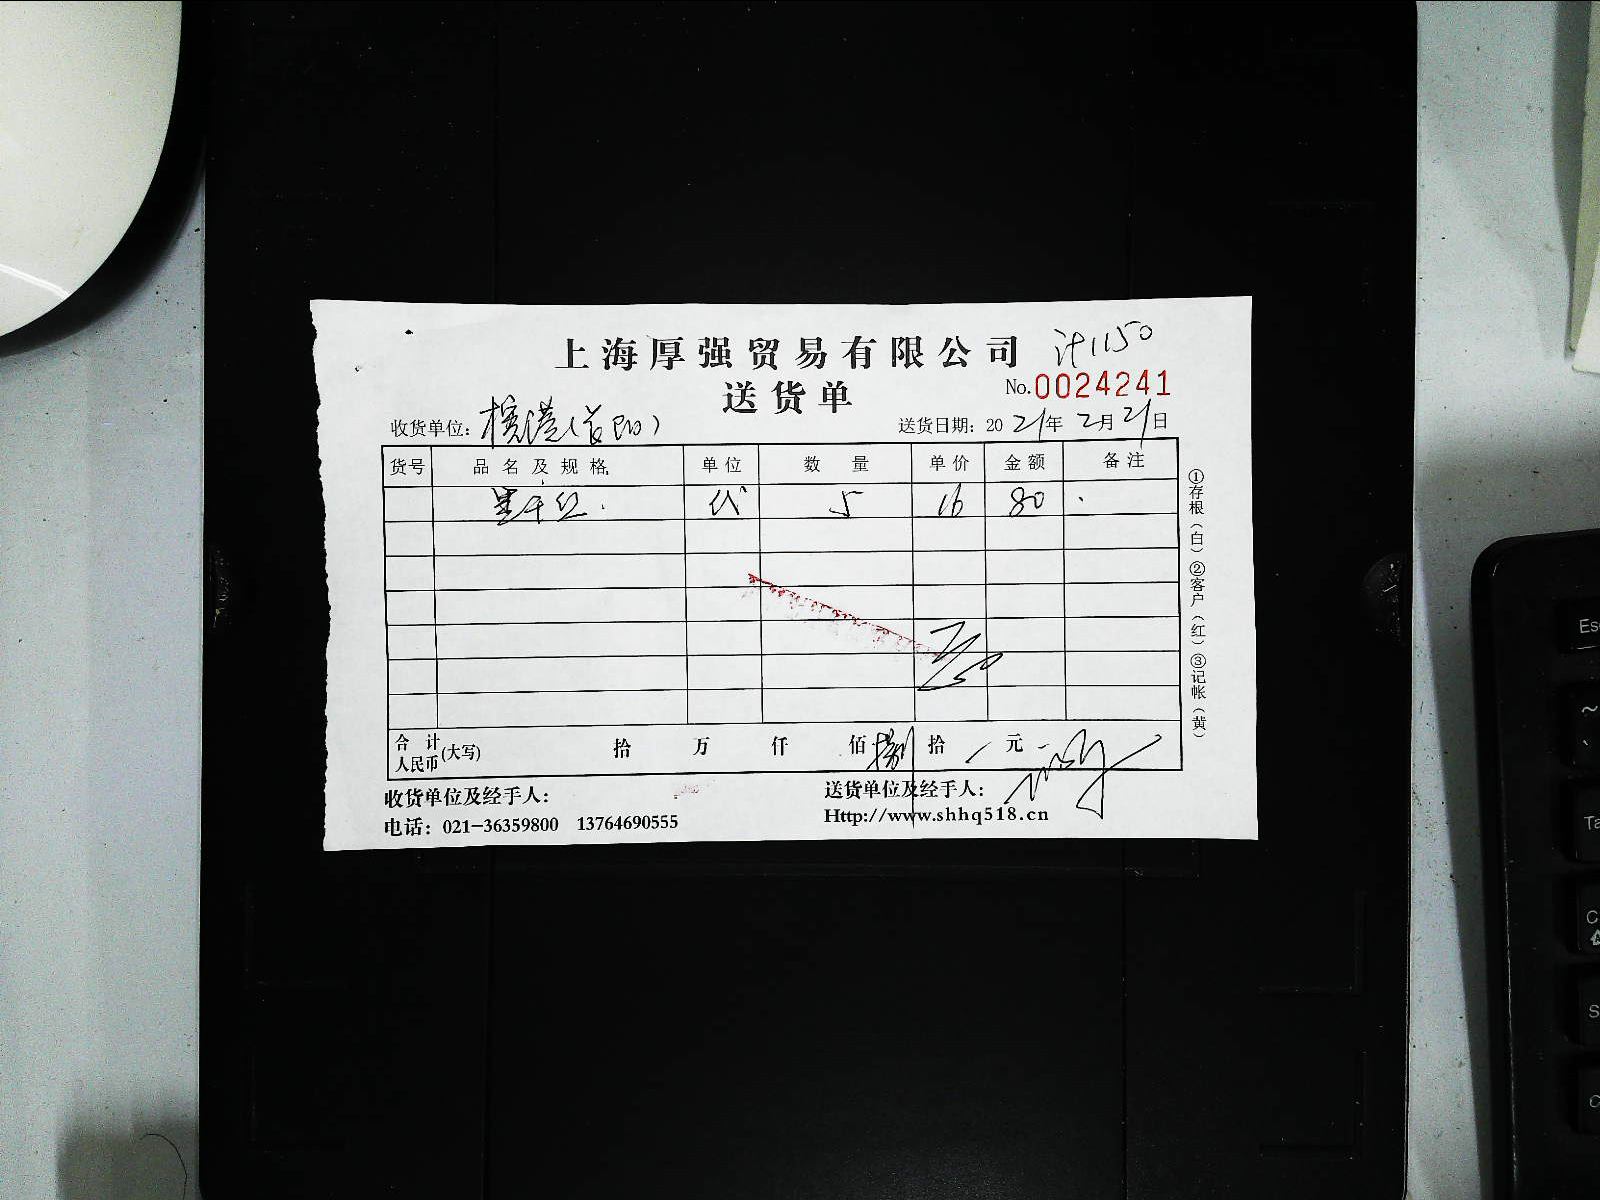 上海厚强贸易有限公司 计1150
送货单 No.0024241
收货单位: 送货日期: 2021年2月21日
货号 品名及规格 单位 数量 单价 金额 备注
5 16 80
合计人民币(大写) 拾 万 仟 佰 捌拾 元
收货单位及经手人: 送货单位及经手人:
电话: 021-36359800 13764690555 Http://www.shhq518.cn
①存根(白)②客户(红)③记帐(黄)
Esc